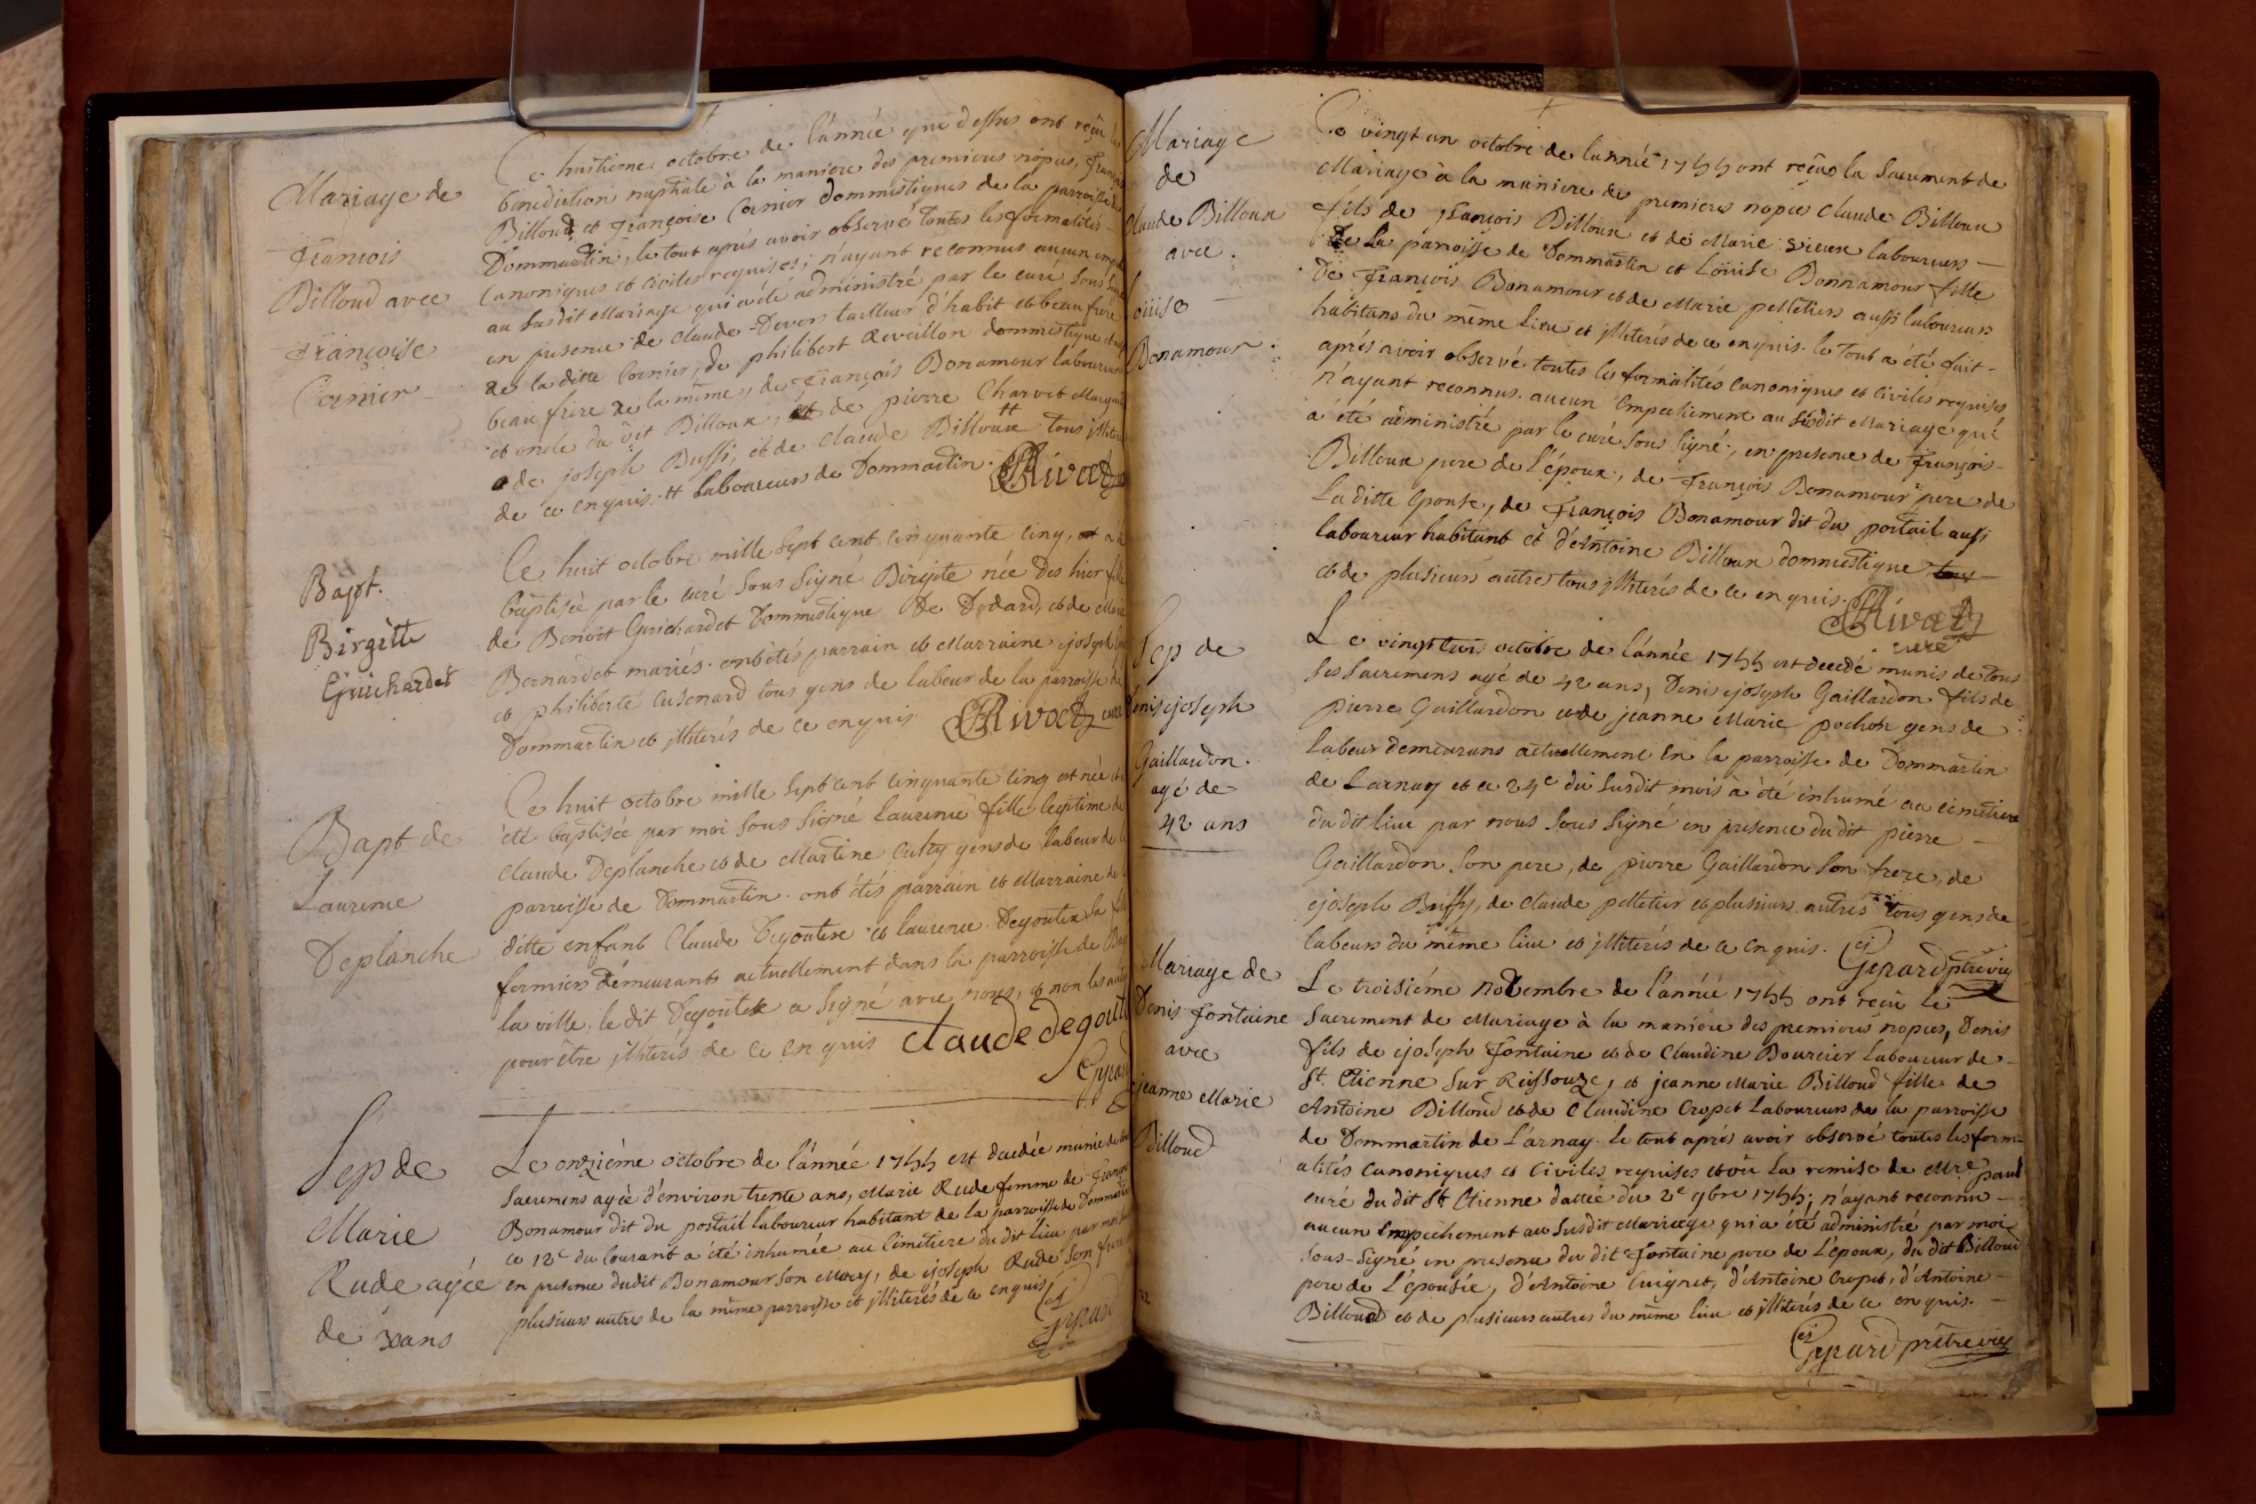 Mariage de
François
Billoud avec
Françoise
Cornier
Ce huitieme octobre de l'année que dessus ont reçu la
benediction nuptiale à la maniere des premieres nopces, François
Billoud et Françoise Cornier dommestiques de la parroisse de
Dommartin, le tout après avoir observé toutes les formalités
canoniques et civiles requises; n'ayant reconnus aucun
au susdit Mariage qui a été administré par le curé sous signé
en presence de Claude Devers tailleur d'habit et beau frere
de la ditte Cornier, de philibert Reveillon dommestique
beau frere de la même, de François Bonamour laboureur
et oncle du dit Billoux, et de pierre Charvet
de joseph Buffi, et de Claude Billoux tt tous illiterés
de ce enquis. tt laboureurs de Dommartin. Rivat
Bapt.
Birgitte
Guichardet
Ce huit octobre mille sept cent cinquante cinq, a été
baptisée par le curé sous signé Birgite née des hier fille
de Benoit Guichardet Dommestique De Dodard, et de Marie
Bernardet mariés. ont étés parrain et Marraine joseph
et philiberte Cusenard tous gens de labeur de la parroisse de
Dommartin et illiterés de ce enquis Rivat curé
Bapt de
Laurence
Deplanche
Ce huit octobre mille sept cent cinquante cinq est née et a
été baptisée par moi sous signé Laurence fille legitime de
Claude Deplanche et de Martine Cuby gens de labeur de la
parroisse de Dommartin. ont étés parrain et Marraine de la
ditte enfant Claude Degoutte et laurence Degoutte sa
fermiers démeurants actuellement dans la parroisse de
la ville, le dit Degoutte a signé avec nous, et non les autres
pour être illiterés de ce enquis Claude Degoutte
Gerard
Sep de
Marie
Rude agée
de 30 ans
Le onzième octobre de l'année 1755 est decedée munie de tous
sacremens agée d'environ trente ans, Marie Rude femme de François
Bonamour dit du portail laboureur habitant de la parroisse de Dommartin
ce 12e du courant a été inhumée au cimetiere du dit lieu par moi
en presence dudit Bonamour son Mary, de joseph Rude son frere
plusieurs autres de la même parroisse et illiterés de ce enquis
Gerard
Mariage
de
Claude Billoux
avec
Loüise
Bonamour
Ce vingt un octobre de l'année 1755 ont reçus le Sacrement de
Mariage à la maniere de premieres nopces Claude Billoux
fils de François Billoux et de Marie Vieux laboureurs
De la parroisse de Dommartin et Loüise Bonnamour fille
De François Bonamour et de Marie pelletiers aussi laboureurs
habitans du même lieu et illiterés de ce enquis. le tout a été fait
après avoir observé toutes les formalités canoniques et civiles requises
n'ayant reconnus aucun empechement au susdit Mariage qui
a été administré par le curé sous signé, en presence de François
Billoux pere de l'époux, de François Bonamour pere de
La ditte epouse, de François Bonamour dit du portail aussi
laboureur habitant et d'Antoine Billoux dommestique
et de plusieurs autres tous illiterés de ce enquis.
Rivat
curé
Sep de
Denis joseph
Gaillardon.
agé de
42 ans
Le vingt trois octobre de l'année 1755 est decedé munis de tous
ses sacremens agé de 42 ans, Denis joseph Gaillardon fils de
pierre Gaillardon et de jeanne Marie pochon gens de
labeur demeurans actuellement en la parroisse de Dommartin
de Larnay et ce 24e du susdit mois a été inhumé au cimetiere
du dit lieu par nous sous signé en presence du dit pierre
Gaillardon son pere, de pierre Gaillardon son frere, de
joseph Buffy, de Claude pelletier et plusieurs autres tous gens de
labeurs du même lieu et illiterés de ce enquis.
Gerard ptre vic
Mariage de
Denis fontaine
avec
jeanne Marie
Billoud
Le troisiéme Novembre de l'année 1755 ont reçu le
Sacrement de Mariage à la maniere des premieres nopces, Denis
fils de joseph fontaine et de Claudine Bourcier Laboureur de
St Etienne sur Reissouze, et jeanne Marie Billoud fille de
Antoine Billoud et de Claudine Cropet Laboureurs de la parroisse
de Dommartin de L'arnay. Le tout après avoir observé toutes les form
alités canoniques et civiles requises et vu la remise de Mre paul
curé du dit St Etienne dattée du 2e 9bre 1755; n'ayant reconnu
aucun empechement au susdit Mariage qui a été administré par moi
sous-signé en presence du dit fontaine pere de l'époux, du dit Billoud
pere de L'épousée, d'Antoine Cuignet, d'Antoine Cropet, d'Antoine
Billoud et de plusieurs autres du même lieu et illiterés de ce enquis.
Gerard prêtre vic